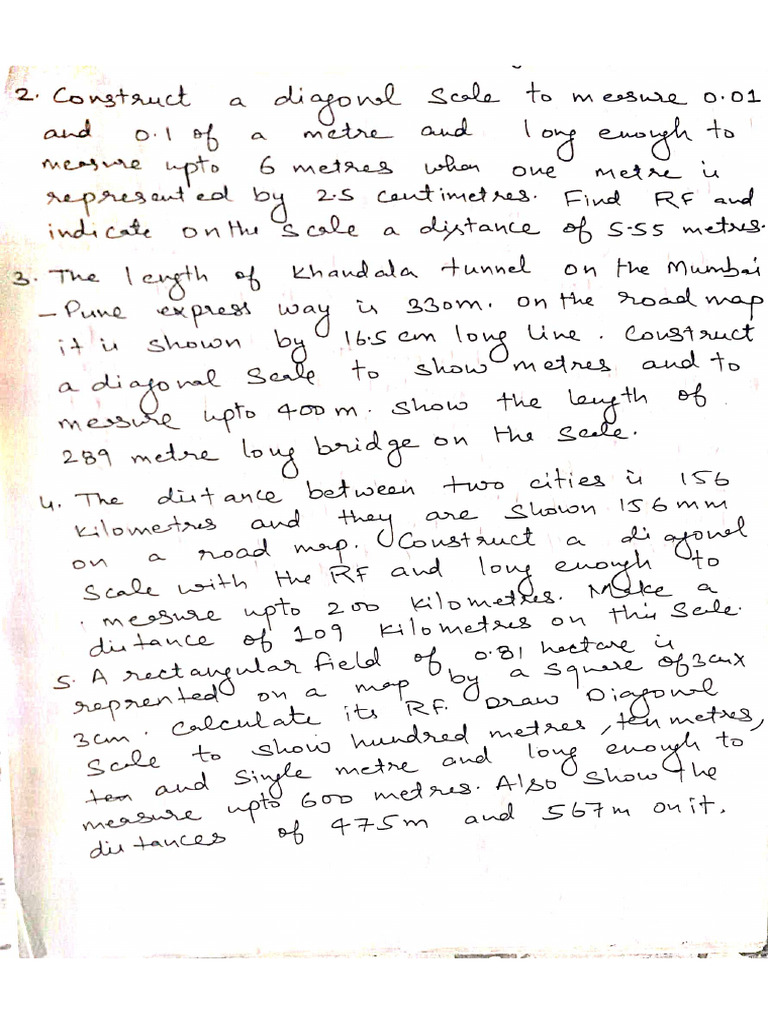 2. Construct a diagonal scale to measure 0.01
and 0.1 of a metre and long enough to
measure upto 6 metres when one metre is
represented by 2.5 centimetres. Find RF and
indicate on the scale a distance of 5.55 metres.
3. The length of Khandala tunnel on the Mumbai
- Pune express way is 330m. on the road map
it is shown by 16.5 cm long line. Construct
a diagonal scale to show metres and to
measure upto 400 m. show the length of
289 metre long bridge on the scale.
4. The distance between two cities is 156
kilometres and they are shown 156 mm
on a road map. Construct a diagonal
scale with the RF and long enough to
measure upto 200 kilometres. Make a
distance of 109 kilometres on this scale.
5. A rectangular field of 0.81 hectare is
reprented on a map by a square of 3cm x
3cm. calculate its RF. Draw Diagonal
scale to show hundred metres, ten metres,
ten and single metre and long enough to
measure upto 600 metres. Also show the
distances of 475m and 567m on it.